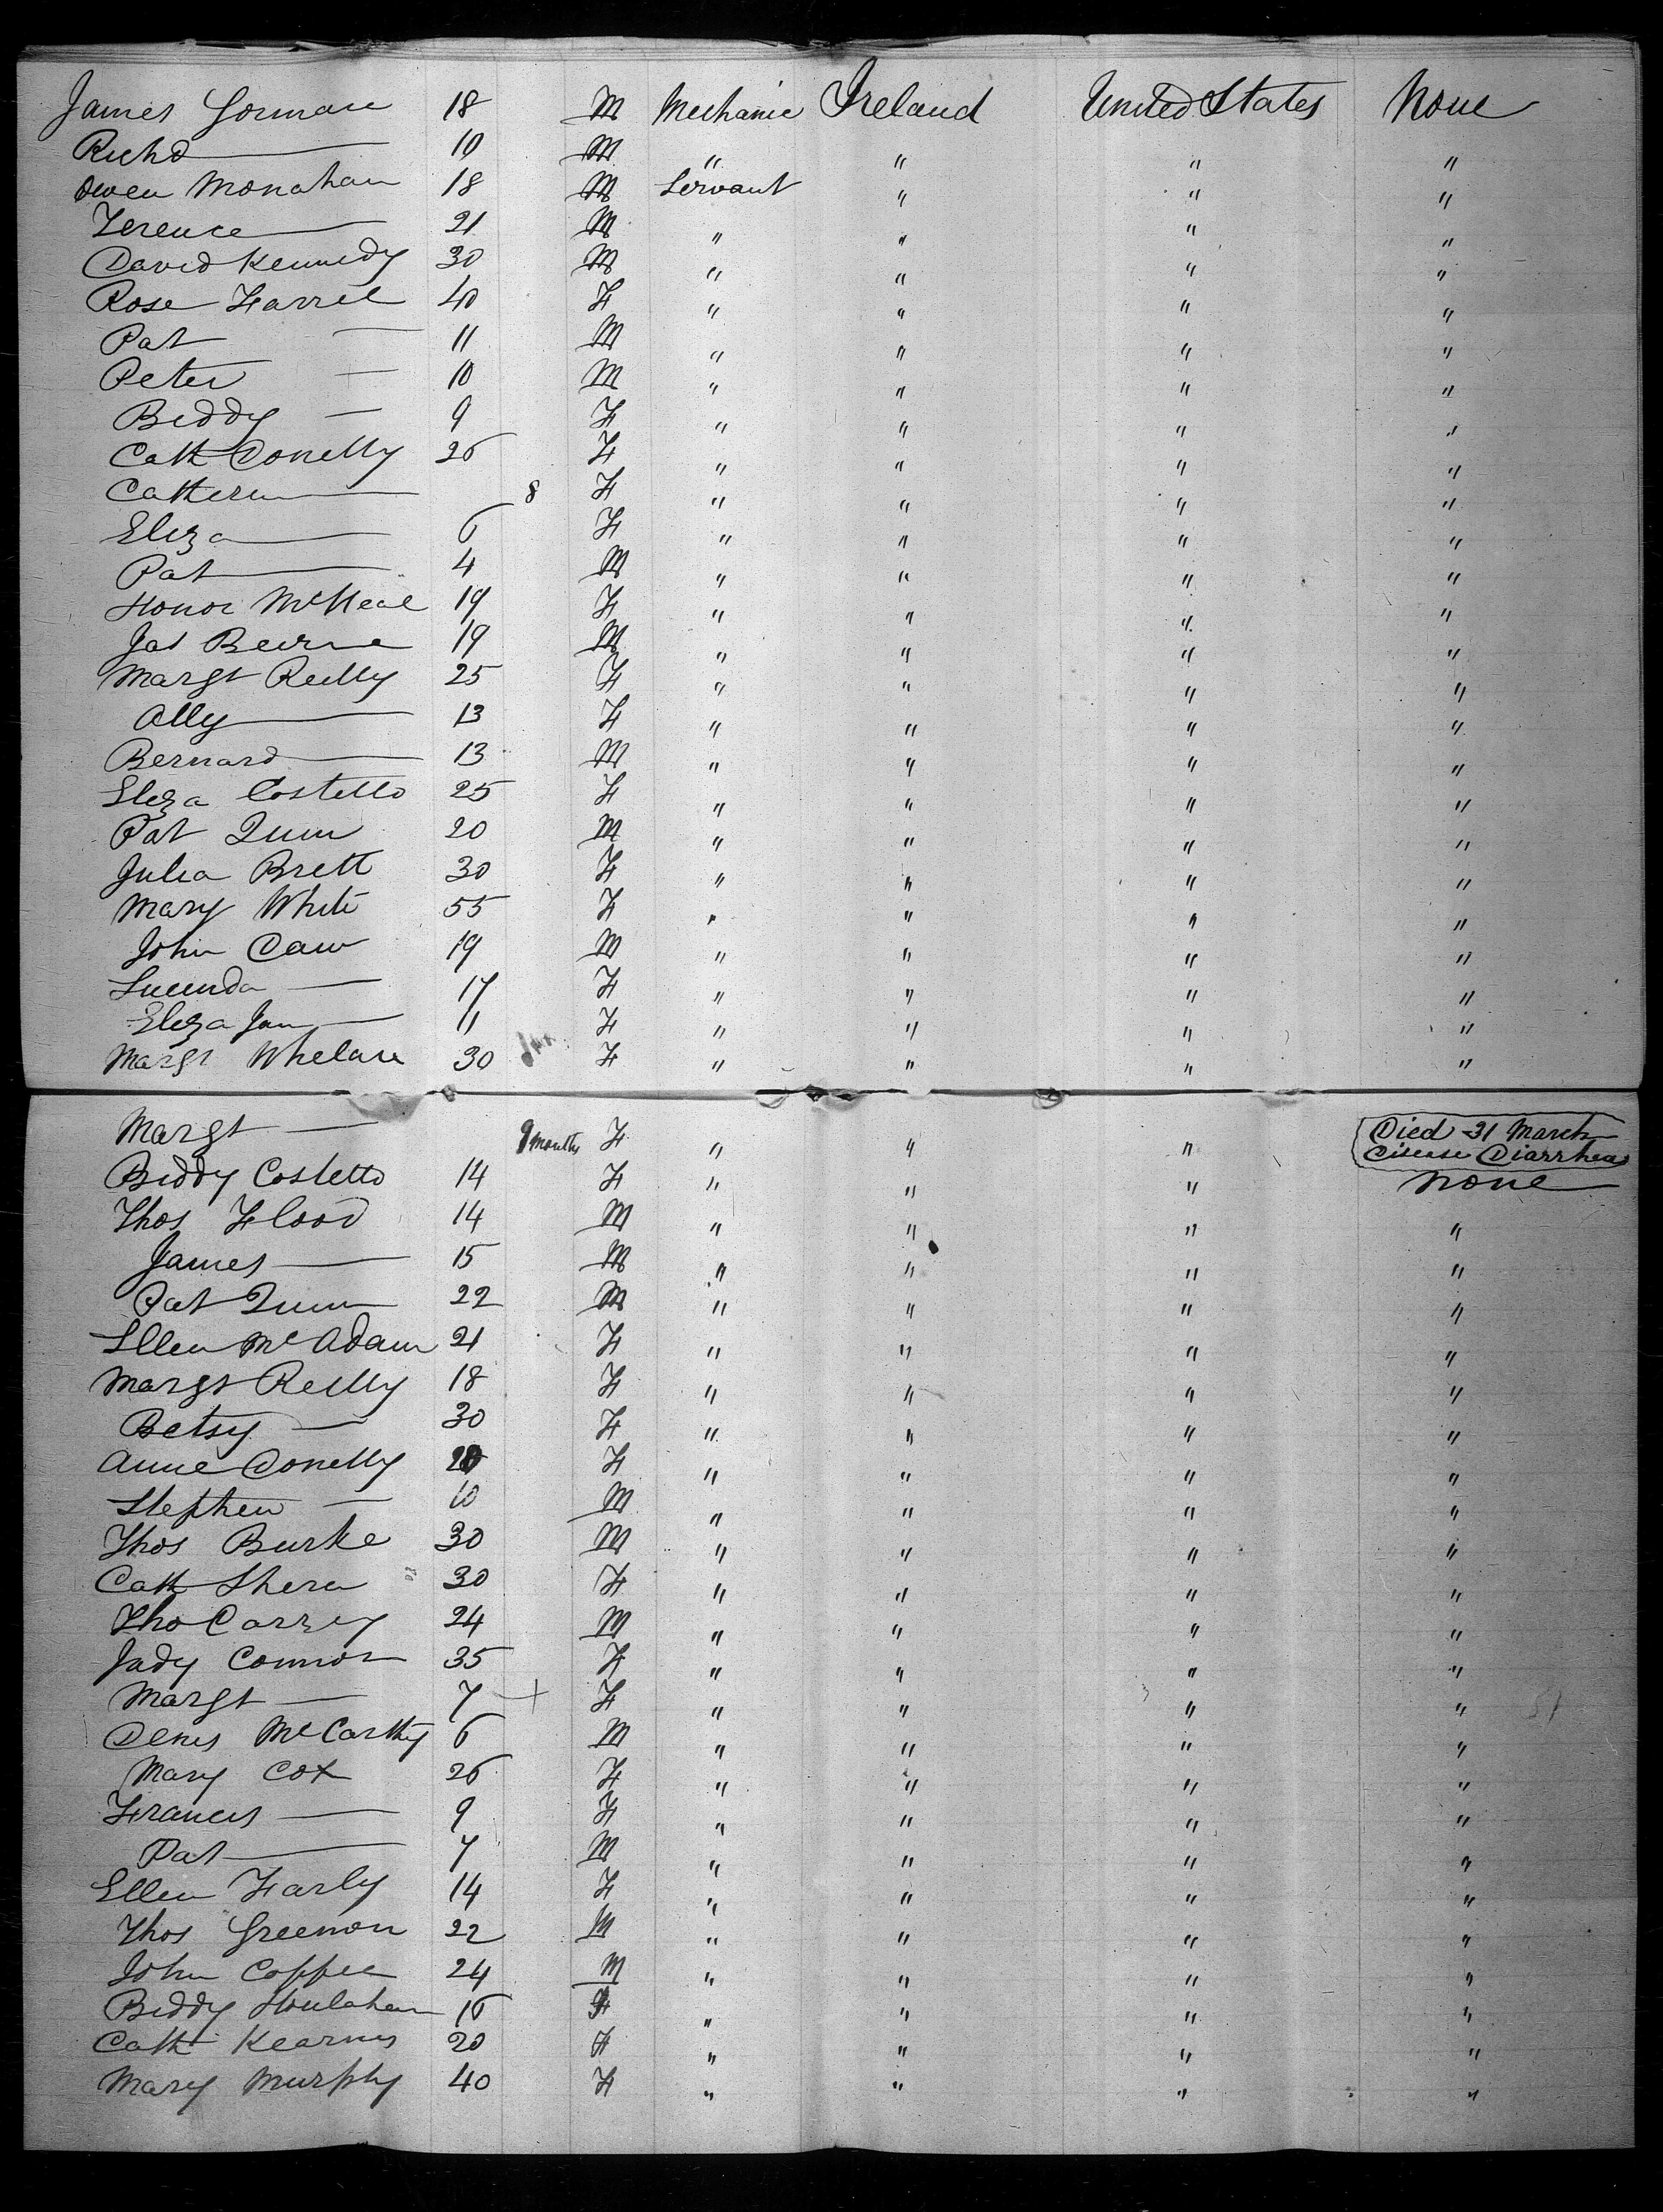 James Gorman 18 M Mechanic Ireland United States None
Richd — 10 M " " " "
Owen Monahan 18 M Servant " " "
Terence — 21 M " " " "
David Kennedy 30 M " " " "
Rose Farrel 40 F " " " "
Pat — 11 M " " " "
Peter — 10 M " " " "
Biddy — 9 F " " " "
Cath Donelly 26 F " " " "
Catherin — 8 F " " " "
Eliza — 6 F " " " "
Pat — 4 M " " " "
Honor McNeal 19 F " " " "
Jas Beirne 19 M " " " "
Margt Reilly 25 F " " " "
Ally — 13 F " " " "
Bernard — 13 M " " " "
Eliza Costello 25 F " " " "
Pat Quin 20 M " " " "
Julia Brett 30 F " " " "
Mary White 55 F " " " "
John Caw 19 M " " " "
Lucinda — 17 F " " " "
Eliza Jan — 11 F " " " "
Margt Whelan 30 F " " " "
Margt — 9 months F " " " Died 31 March
Disease Diarrhea
Biddy Costello 14 F " " " None
Thos Flood 14 M " " " "
James — 15 M " " " "
Pat Quin 22 M " " " "
Ellen McAdam 21 F " " " "
Margt Reilly 18 F " " " "
Betsy — 30 F " " " "
Anne Donelly F " " " "
Stephen — 10 M " " " "
Thos Burke 30 M " " " "
Cath Shera 30 F " " " "
Tho Carrey 24 M " " " "
Judy Connor 35 F " " " "
Margt — 7 + F " " " "
Denis McCarthy 6 M " " " "
Mary Cox 26 F " " " "
Francis — 9 F " " " "
Pat — 7 M " " " "
Ellen Farly 14 F " " " "
Thos Greenon 22 M " " " "
John Coffee 24 M " " " "
Biddy Houlahan 16 F " " " "
Cath Kearns 20 F " " " "
Mary Murphy 40 F " " " "